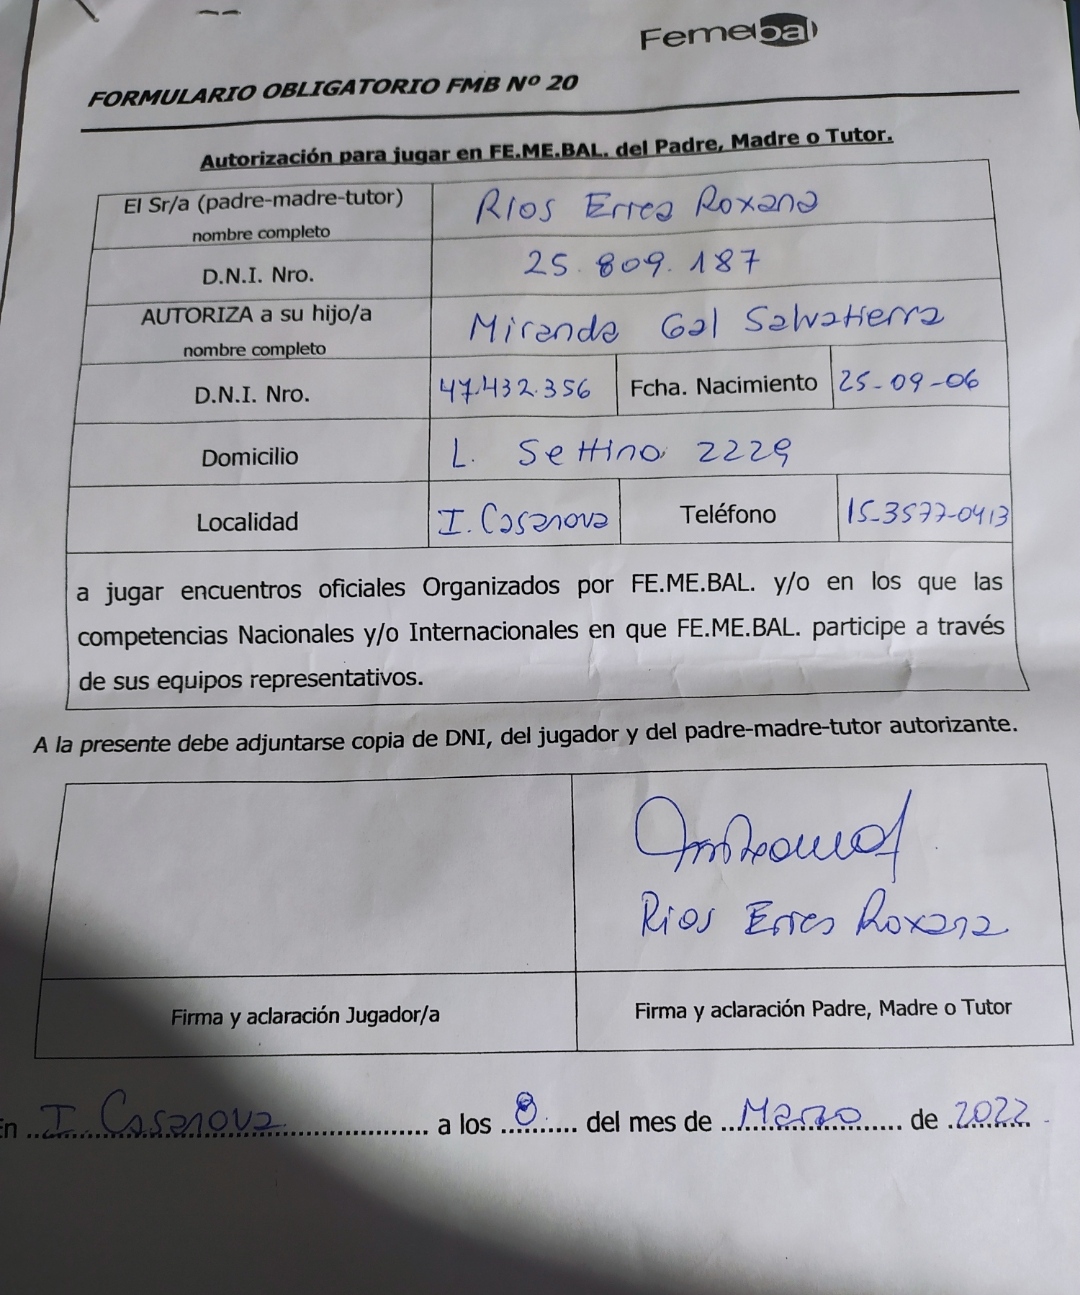 Femebal
FORMULARIO OBLIGATORIO FMB Nº 20
Autorización para jugar en FE.ME.BAL. del Padre, Madre o Tutor.
El Sr/a (padre-madre-tutor)
nombre completo
Rios Errea Roxana
D.N.I. Nro.
25.809.187
AUTORIZA a su hijo/a
nombre completo
Miranda Gal Salvatierra
D.N.I. Nro.
47.432.356
Fcha. Nacimiento
25-09-06
Domicilio
L. Settino 2229
Localidad
I. Casanova
Teléfono
15-3577-0413
a jugar encuentros oficiales Organizados por FE.ME.BAL. y/o en los que las
competencias Nacionales y/o Internacionales en que FE.ME.BAL. participe a través
de sus equipos representativos.
A la presente debe adjuntarse copia de DNI, del jugador y del padre-madre-tutor autorizante.
Rios Errea Roxana
Firma y aclaración Jugador/a
Firma y aclaración Padre, Madre o Tutor
En I. Casanova a los 8 del mes de Marzo de 2022